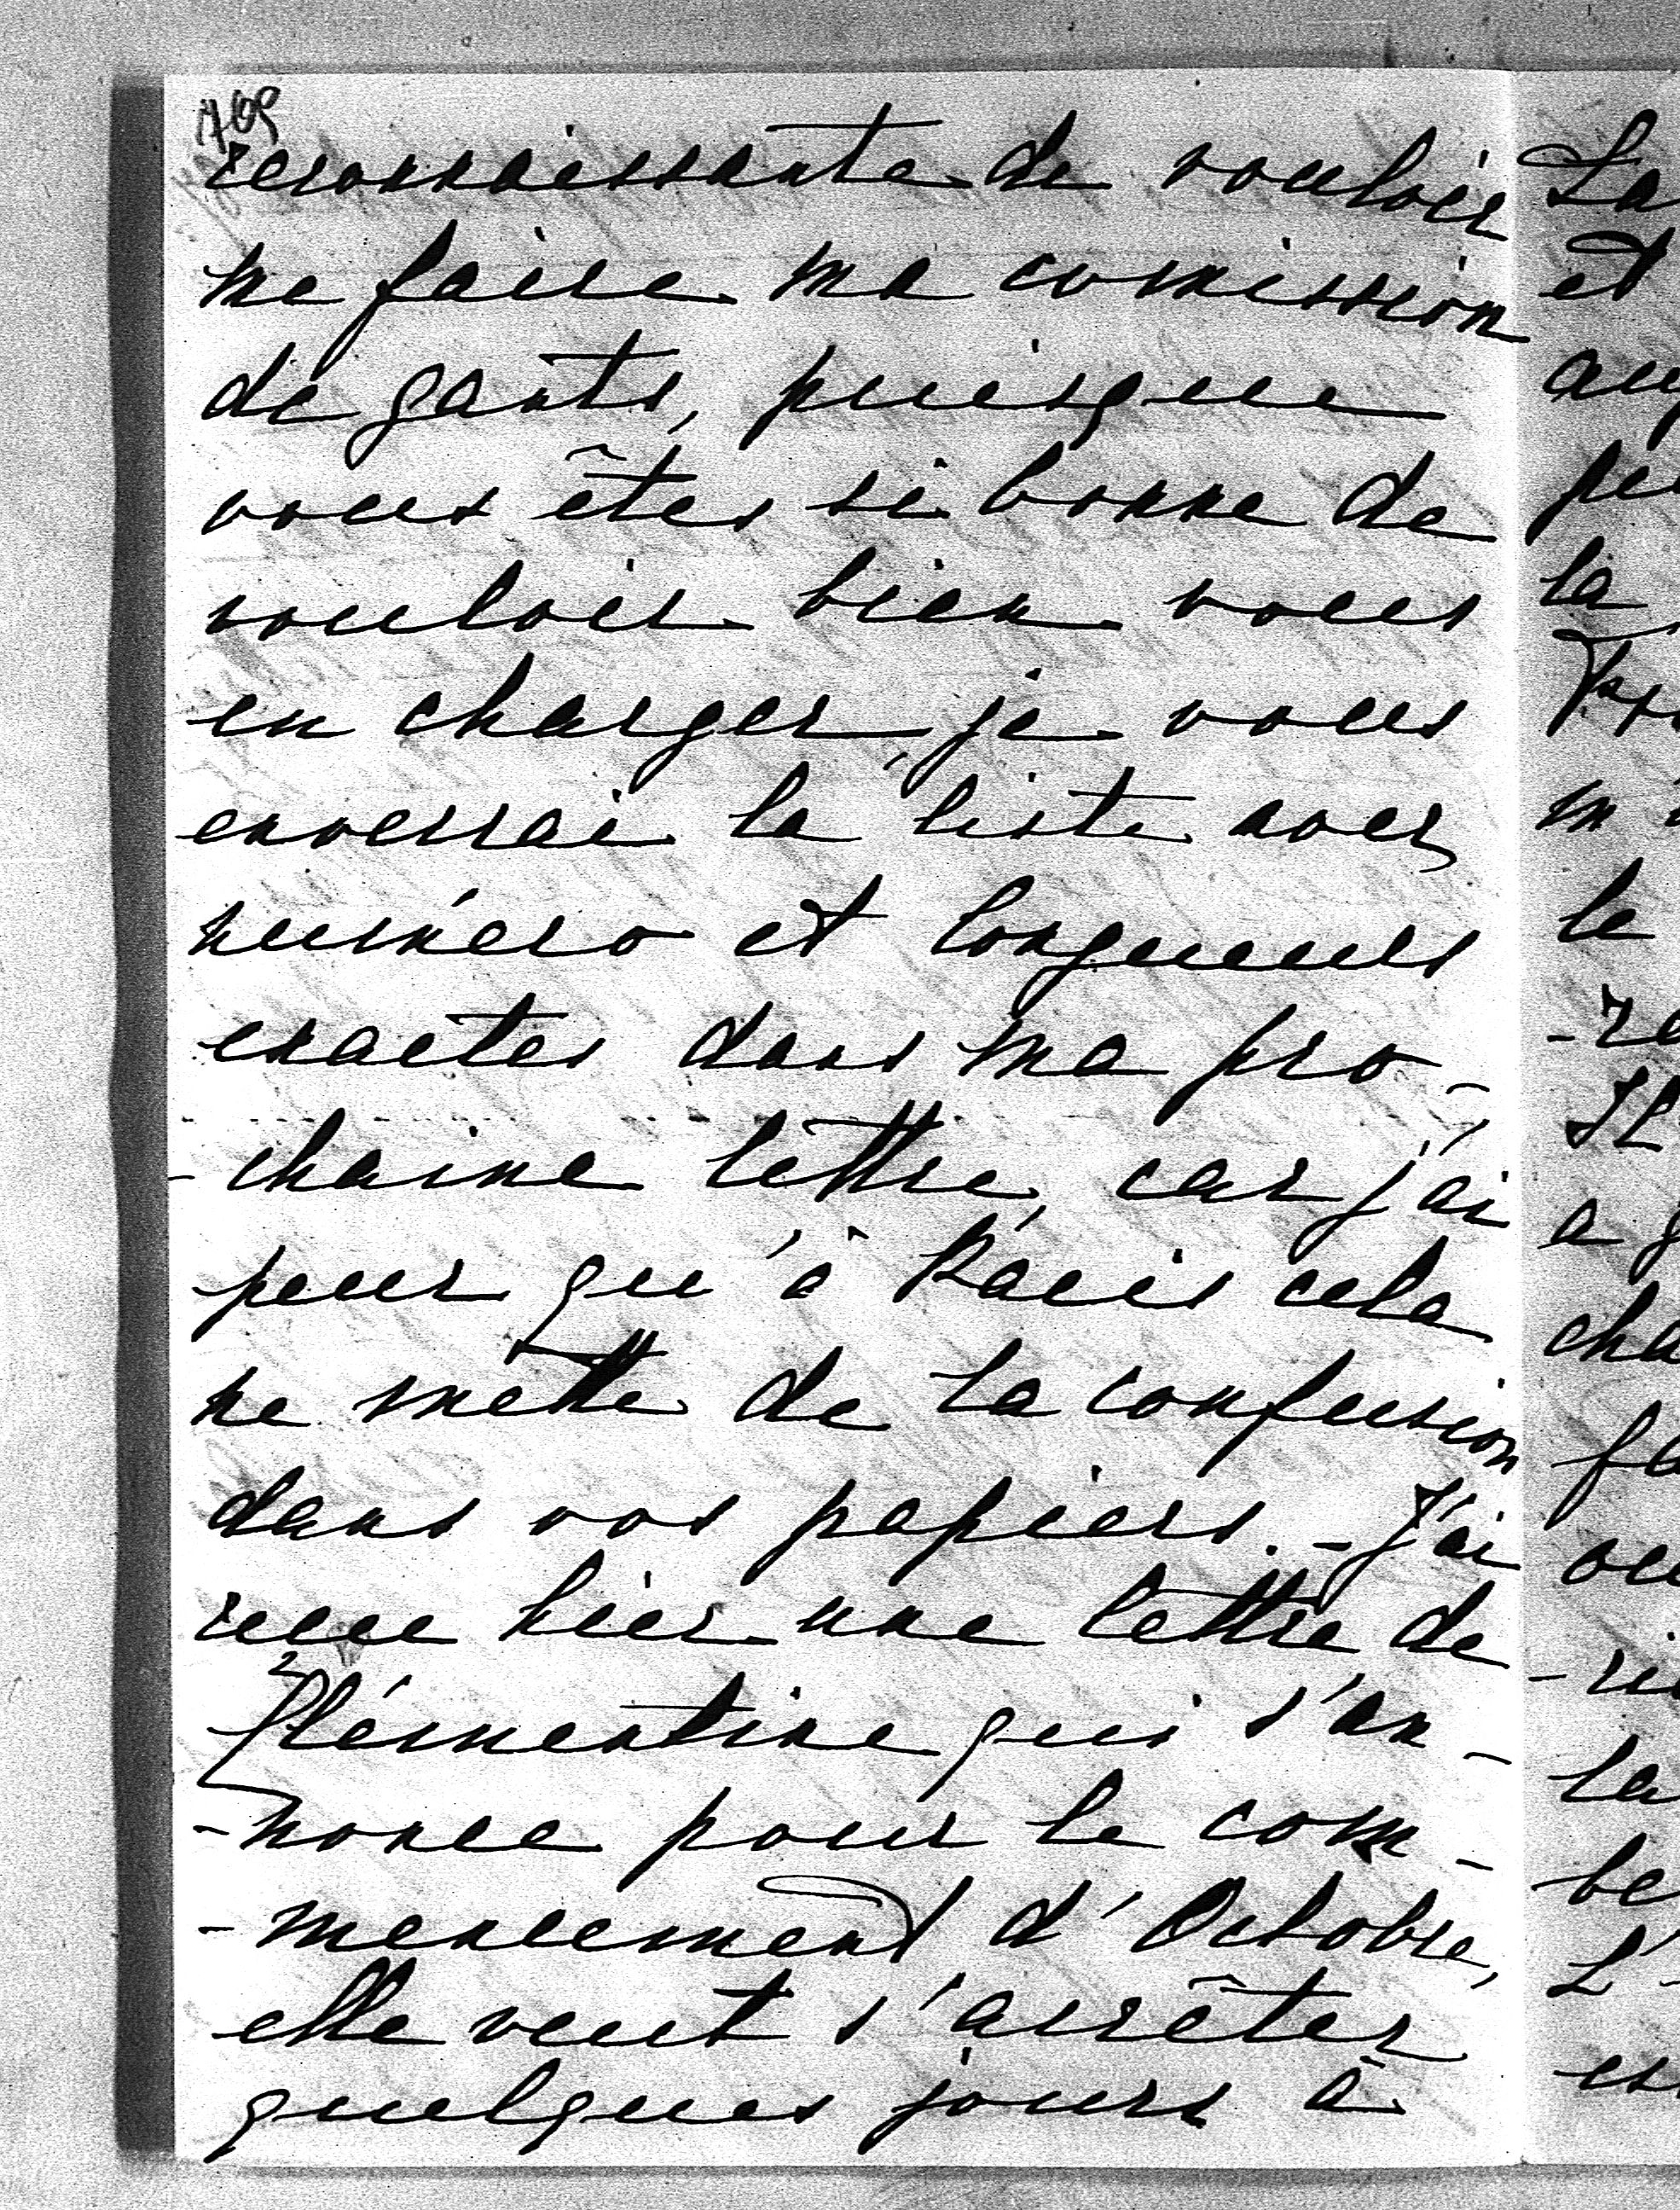 709
reconnaissante de vouloir
me faire ma comission
de gants, puisque
vous êtes si bonne de
vouloir bien vous
en charger, je vous
enverrai la liste avec
numéro et longueurs
exactes dans ma pro-
-chaine lettre, car j'ai
peur qu'à Paris cela
ne mette de la confusion
dans vos papiers. - J'ai
reçu hier une lettre de
Clémentine qui s'an-
-nonce pour le com-
-mencement d'Octobre,
elle veut s'arrêter
quelques jours à
La
et
la
le